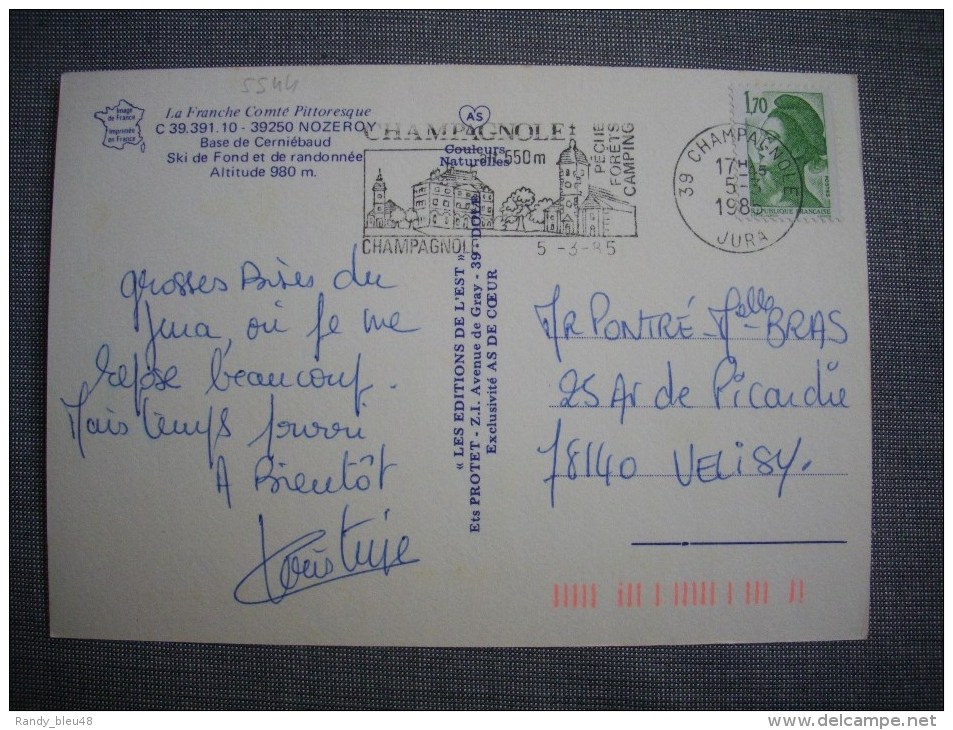 5544
Image
de France
Imprimée
en France
La Franche Comté Pittoresque
C 39.391.10 - 39250 NOZEROY
Base de Cerniébaud
Ski de Fond et de randonnée
Altitude 980 m.
AS
Couleurs
Naturelles
CHAMPAGNOLE
alt 550 m
PÊCHE
FORÊTS
CAMPING
CHAMPAGNOLE
5 -3-85
39 CHAMPAGNOLE
17H15
5-
198
JURA
1,70
REPUBLIQUE FRANÇAISE
« LES EDITIONS DE L'EST »
Ets PROTET - Z.I. Avenue de Gray - 39 - DOLE
Exclusivité AS DE CŒUR
grosses Bises du
Jura, où je me
repose beaucoup.
Mais temps pourri
A Bientôt
Mr PONTRÉ - Melle BRAS
25 Av de Picardie
78140 VELISY.
Randy_bleu48
http://www.delcampe.net